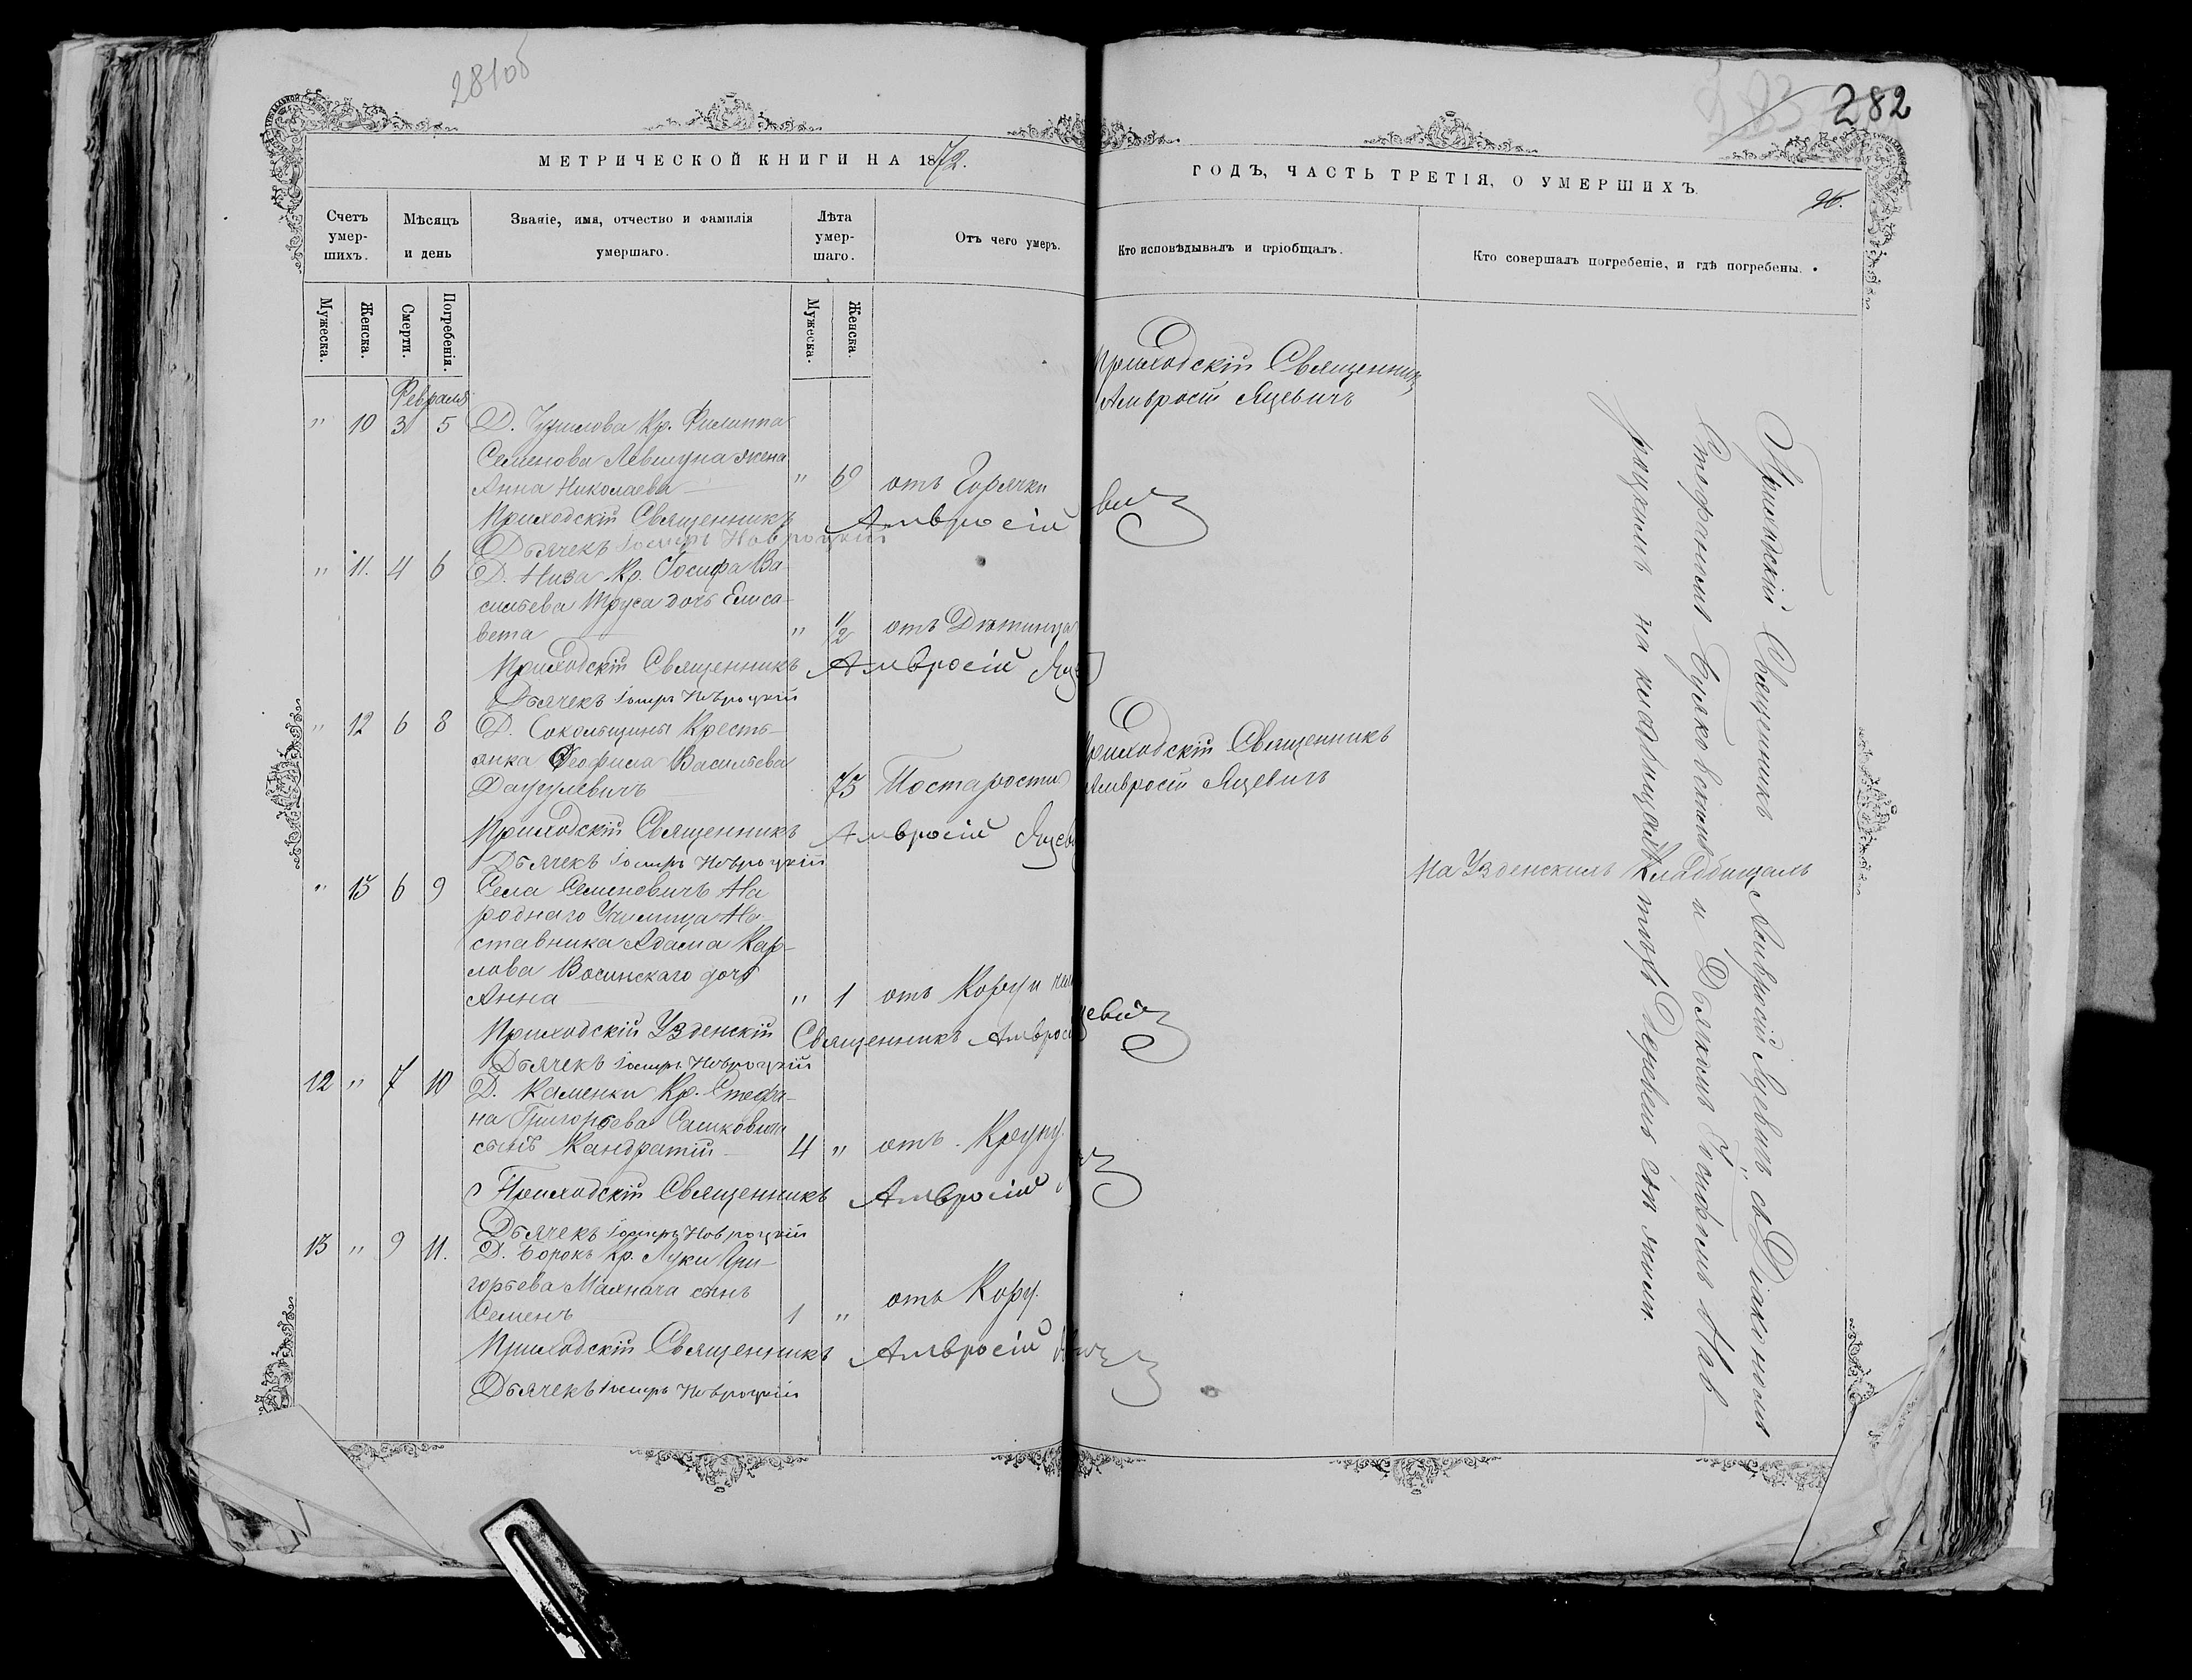 281об
282
МЕТРИЧЕСКОЙ КНИГИ НА 1872.
ГОДЪ, ЧАСТЬ ТРЕТІЯ, О УМЕРШИХЪ.
Счетъ умер-шихъ.
Мѣсяцъ и день
Званіе, имя, отчество и фамилія умершаго.
Лѣта умер-шаго.
Отъ чего умеръ.
Кто исповѣдывалъ и пріобщалъ.
Кто совершалъ погребеніе, и гдѣ погребены.
Мужеска.
Женска.
Смерти.
Погребенія.
Мужеска.
Женска.
Февраля
" 10 3 5 Д. Кр. Филиппа
Семенова жена
Анна Николаева " 60 отъ Горячки
Приходскій Священникъ
Амвросій Яцевичъ
Приходскій Священникъ Амвросій
Дьячекъ Іосифъ Навроцкій
" 11. 4 6 Д. Низа Кр. Іосифа Ва-
сильева Труса дочь Елиса-
вета " 1/2 отъ Дѣтинца
Приходскій Священникъ Амвросій
Дьячекъ Іосифъ Навроцкій
" 12 6 8 Д. Сокольщины Кресть-
янка Феофила Васильева
75 Постарости
Приходскій Священникъ
Амвросій Яцевичъ
Приходскій Священникъ Амвросій
Дьячекъ Іосифъ Навроцкій
" 13 6 9 Села Семеновичъ На
роднаго Училища На-
ставника Адама Кар-
лова Восинскаго дочь
Анна " 1 отъ Кору
На Узденскихъ Кладбищахъ
Приходскій Узденскій Священникъ Амвросій
Дьячекъ Іосифъ Навроцкій
12 " 7 10 Д. Каменки Кр. Стефа-
на Григорьева
сынъ Кандратій 4 " отъ Крупу.
Приходскій Священникъ Амвросій
Дьячекъ Іосифъ Навроцкій
13 " 9 11. Д. Борокъ Кр. Луки Гри-
горьева Махнача сынъ
Семенъ 1 " отъ Кору.
Приходскій Священникъ Амвросій
Дьячекъ Іосифъ Навроцкій
Приходскій Священникъ Амвросій Яцевичъ съ Діакономъ
Стефаномъ и Дьякомъ Іосифомъ Нав-
роцкимъ на кладбищахъ тѣхъ Деревень сѣхъ